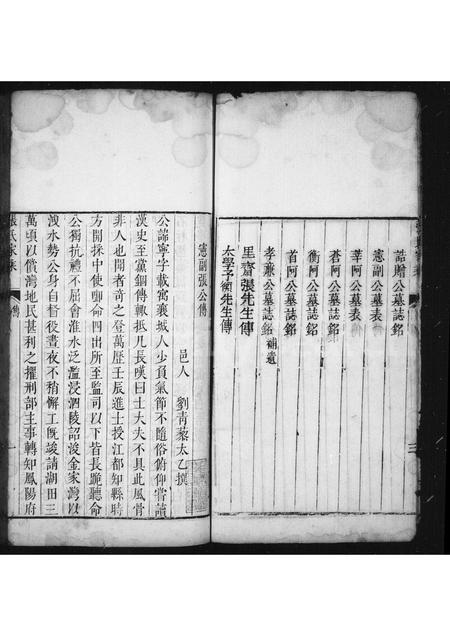 誥贈公墓誌銘
憲副公墓表
莘阿公墓表
蒼阿公墓誌銘
衡阿公墓誌銘
首阿公墓誌銘
孝兼公墓誌銘補遺
里齋張先生傳
太學子衡先生傳
三
憲副張公傳
邑人 劉青藜太乙撰
公諱寧字載寓襄城人少負氣節不隨俗俯仰嘗讀
漢史至黨錮傳輒抵几長嘆曰士大夫不具此風骨
非人也聞者奇之登萬歷壬辰進士授江都知縣時
方開採中使啣命四出所至監司以下皆長跪聽命
公獨抗禮不屈會淮水泛濫浸泗陵詔浚金家灣以
洩水勢公身自督役晝夜不稍懈工既竣請湖田三
萬頃以償灣地民甚利之擢刑部主事轉知鳳陽府
張氏家乘
傳
一